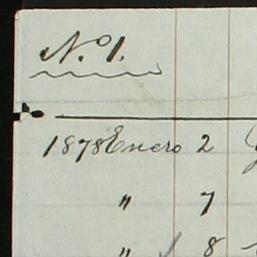 N.º 1.
1878 Enero 2
" 7
" 8